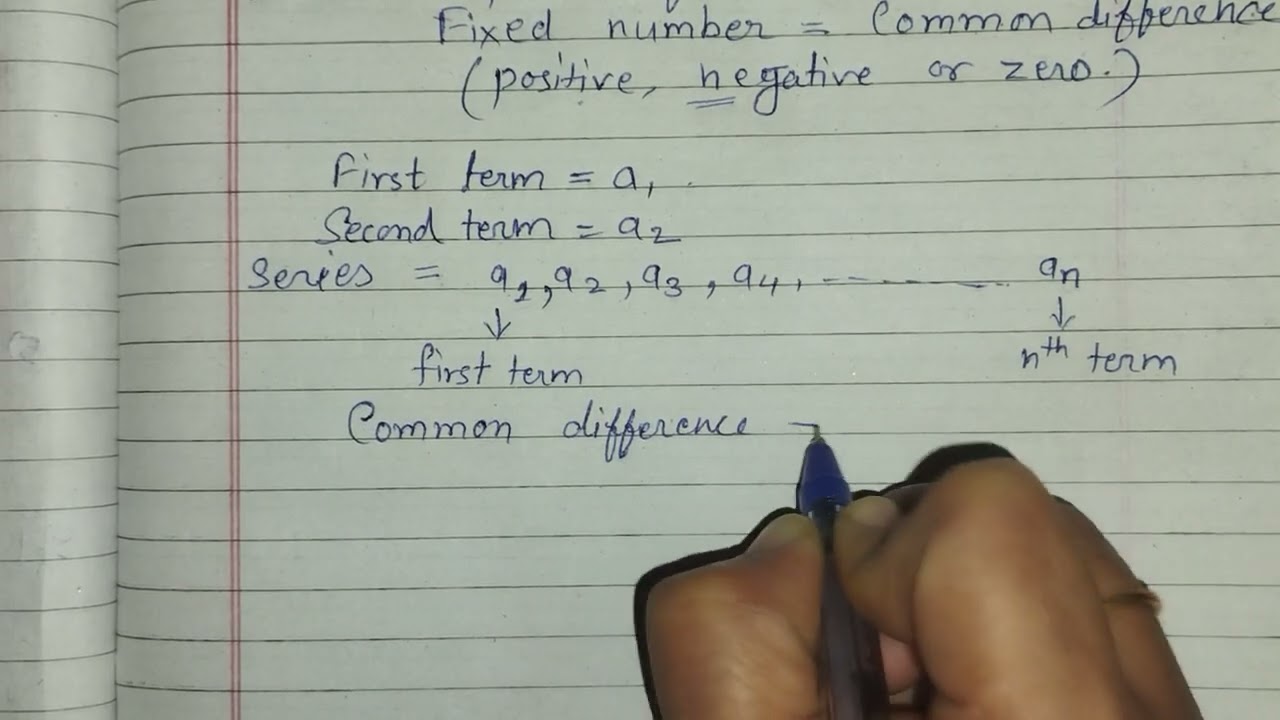 Fixed number = Common difference
(positive, negative or zero.)
First term = a₁
Second term = a₂
Series = a₁, a₂, a₃, a₄, ------- aₙ
↓ ↓
first term nᵗʰ term
Common difference